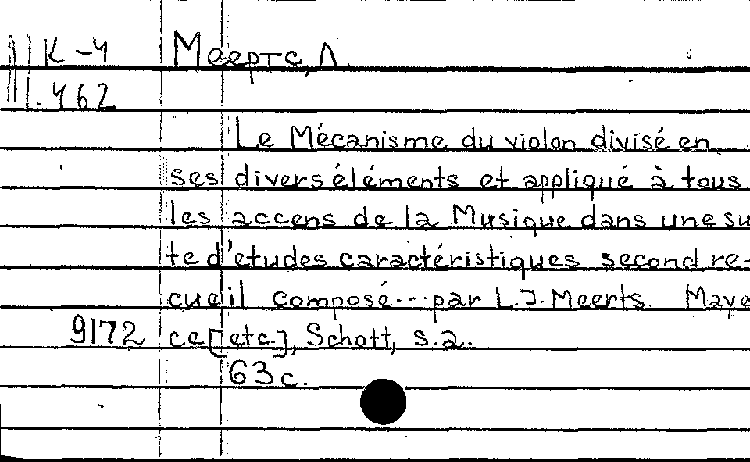 К-4 Меертс, Л
1.462
Le Mécanisme du violon divisé en
ses divers éléments et appliqué à tous
les accens de la Musique dans une su
te d'etudes caractéristiques second re-
cueil composé... par L.J. Meerts. Maye
9172 ce [etc.], Schott, s.a.
63 c.